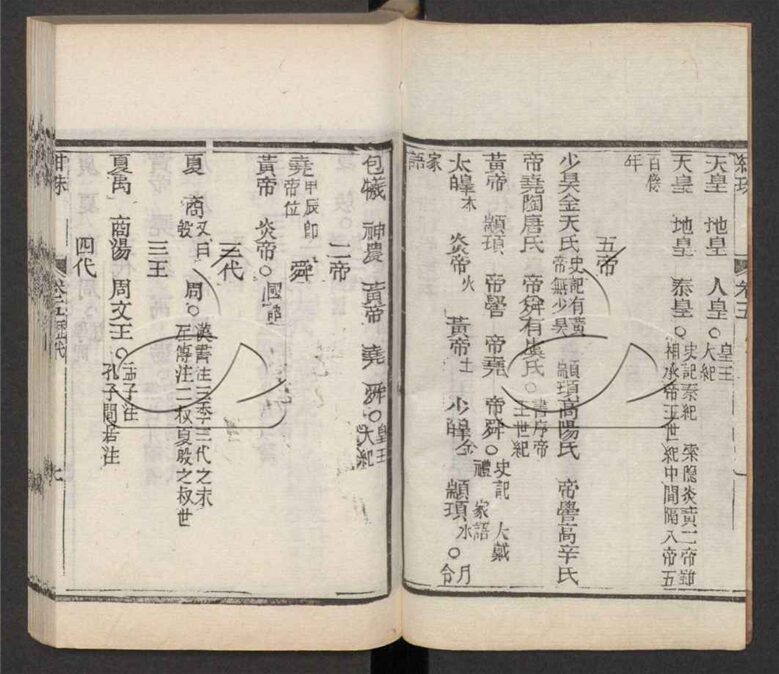 天皇 地皇 人皇○皇王大紀
天皇 地皇 泰皇○史記秦紀 索隱炎黃二帝雖相承帝王世紀中間隔八帝五百餘年
五帝
少昊金天氏史記有黃帝無少昊 顓頊高陽氏 帝嚳高辛氏
帝堯陶唐氏 帝舜有虞氏○書序帝王世紀
黃帝 顓頊 帝嚳 帝堯 帝舜○史記 大戴禮 家語
太皥木 炎帝火 黃帝土 少皥金 顓頊水○月令
家語
包犧 神農 黃帝 堯 舜○皇王大紀
二帝
堯甲辰即帝位 舜
黃帝 炎帝○國語
三代
夏 商又曰殷 周○漢書注三季三代之末 左傳注二叔夏殷之叔世
三王
夏禹 商湯 周文王○孟子注 孔子閒居注
四代